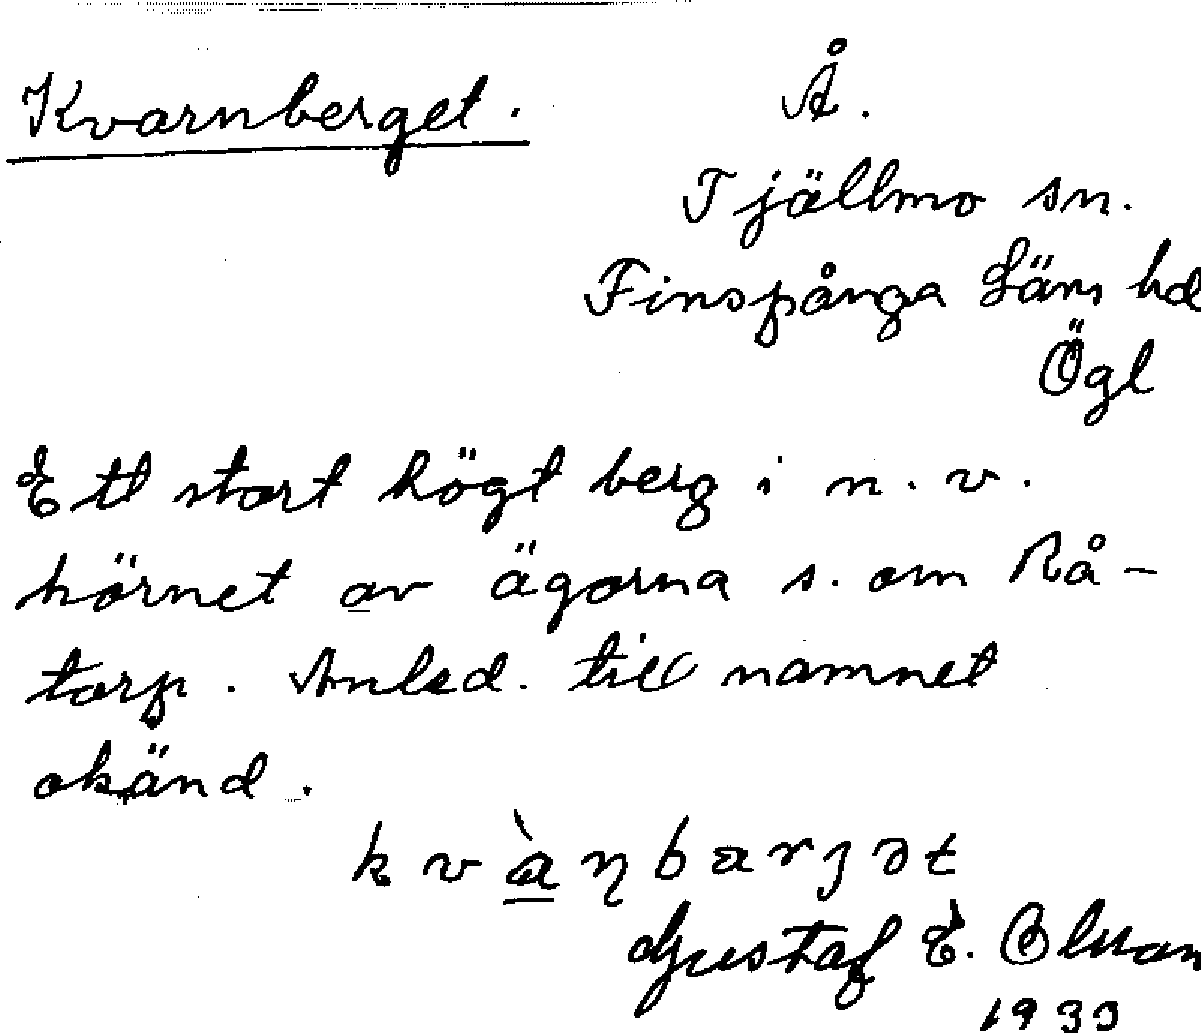 Kvarnberget.
Å.
Tjällmo sn.
Finspånga Läns hd
Ögl
Ett stort högt berg i n. v.
hörnet av ägorna s. om Rå-
torp. Anled. till namnet
okänd.
kvàɳbarjət
Gustaf E. Olsson
1933